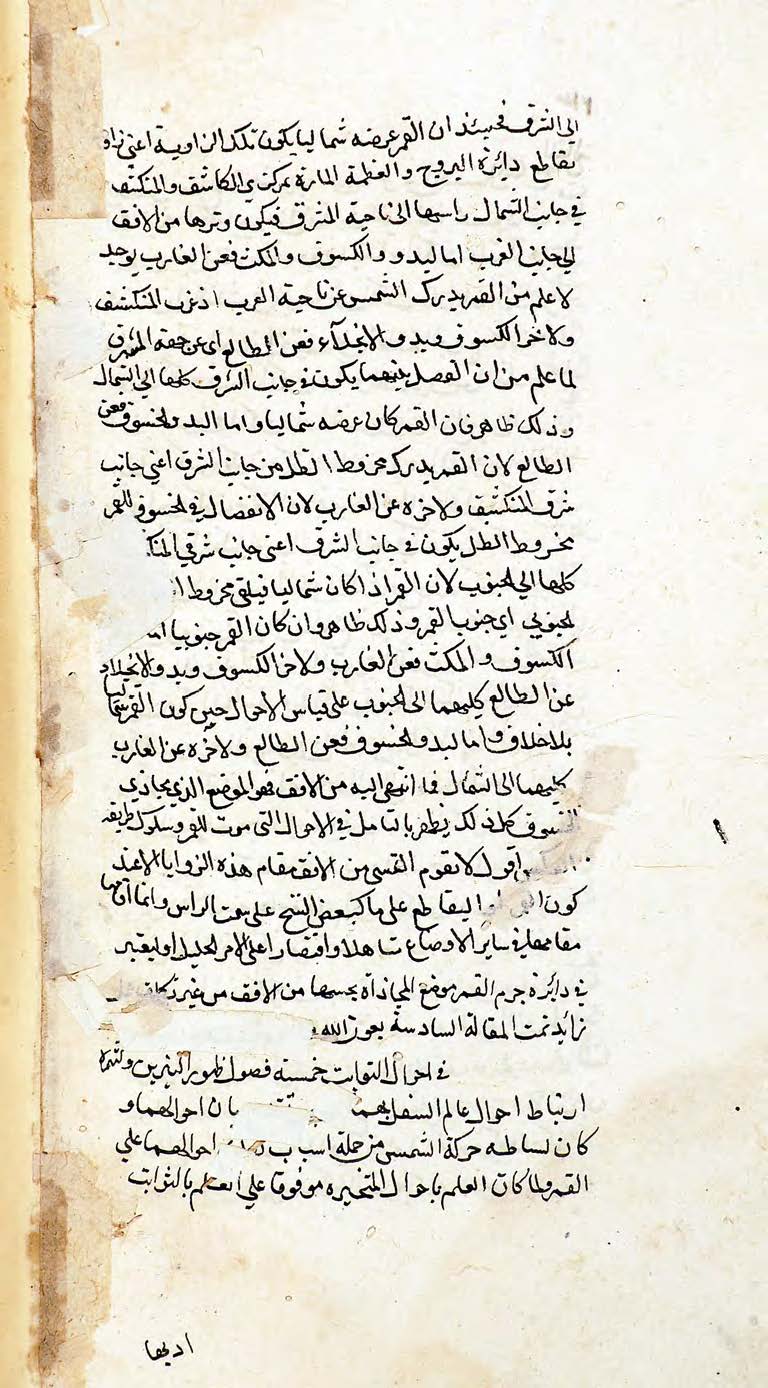 الى الشرق فحينئذ ان القمر عرضه شماليا يكون تلك الزاوية اعنى زاو
تقاطع دائرة البروج والعظمة المارة بمركزي الكاشف والمنكشف
في جانب الشمال راسها الى ناحية المشرق فيكون وترها من الافق
الى جانب الغرب اما لبدو والكسوف والمكث فعن الغارب يوجد
لا علم من القمر يدرك الشمس عن ناحية الغرب اذ غرب المنكشف
ولاخر الكسوف وبدو الانجلاء فعن الطالع اى عن جهة المشرق
لما علم من ان الفصل بينهما يكون في جانب الشرق كلها الى الشمال
وذلك ظاهر فان القمر كان عرضه شماليا واما البدو الخسوف فعن
الطالع لان القمر يدرك مخروط الظل من جانب الشرق اعنى جانب
شرق المنكشف ولاخره عن الغارب لان الانفصال في الخسوف للقمر
مخروط الظل يكون في جانب الشرق اعنى جانب شرقي المنك
كلها الى الجنوب لان القمر اذا كان شماليا فيلقى مخروط ا
لجنوبي اى جنوب القمر وذلك ظاهر وان كان القمر جنوبيا اما
الكسوف والمكث فعن الغارب ولاخر الكسوف وبدو الانجلاء
عن الطالع كليهما الى الجنوب على قياس الاحوال حين كون القمر شماليا
بلا خلاف واما لبدو الخسوف فعن الطالع ولاخره عن الغارب
كليهما الى الشمال فما انتهى اليه من الافق فهو الموضع الذي يحاذي
الخسوف كل ذلك يظهر بالتامل في الاحوال التى موت للقمر وسلوك طريقه
اقول لا تقوم القسى من الافق مقام هذه الزوايا الا عند
كون التقاطع على ما كبعض النسخ على سمت الراس وانما اقامها
مقامها في ساير الاوضاع تساهلا واقتصارا على الامر الجليل او ليعتبر
في دائرة جرم القمر موضع المحاذاة بحسبها من الافق من غير
زايد تمت المقالة السادسة بعون الله
في احوال الثوابت خمسة فصول ظهور النيرين ولشهرة
ارتباط احوال عالم السفل بهما بان احوالهما و
كان لبساطه حركة الشمس من جملة اسباب احوالهما على
القمر ولما كان العلم باحوال المتحيره موقوفا على العلم بالثوابت
اديها